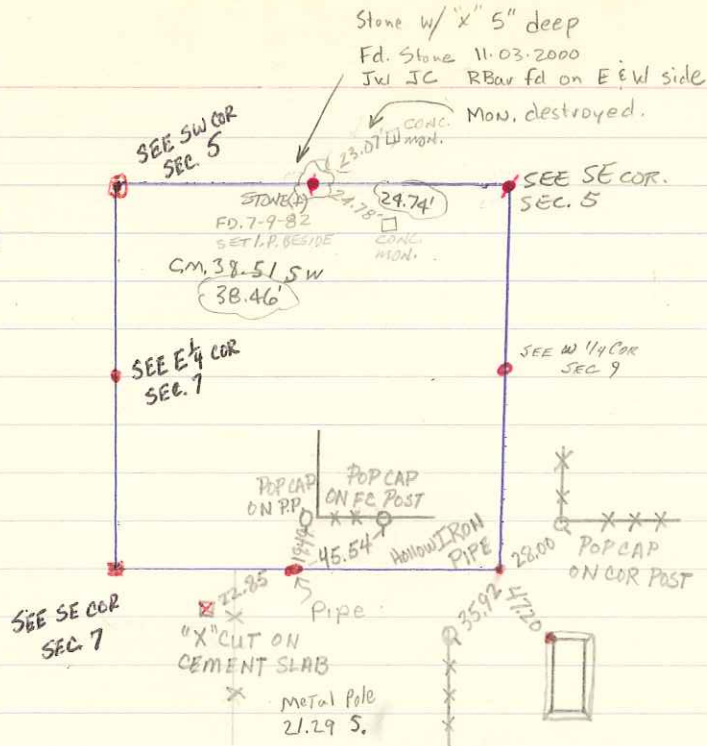 Stone w/ "x" 5" deep
Fd. Stone 11.03.2000
JW JC RBar fd on E & W side
MON. destroyed.
SEE SW COR
SEC. 5
23.07'
CONC.
MON.
SEE SE COR.
SEC. 5
STONE(X)
24.78'
24.74'
FD. 7-9-82
SET I.P. BESIDE
CONC.
MON.
G.M. 38.51 SW
38.46'
SEE E 1/4 COR
SEC. 7
SEE W 1/4 COR
SEC 9
POP CAP
ON P.P.
POP CAP
ON FC POST
45.54
HOLLOW IRON
PIPE
28.00
POP CAP
ON COR POST
SEE SE COR
SEC. 7
22.85
Pipe
35.92
47.20
"X" CUT ON
CEMENT SLAB
Metal Pole
21.29 S.